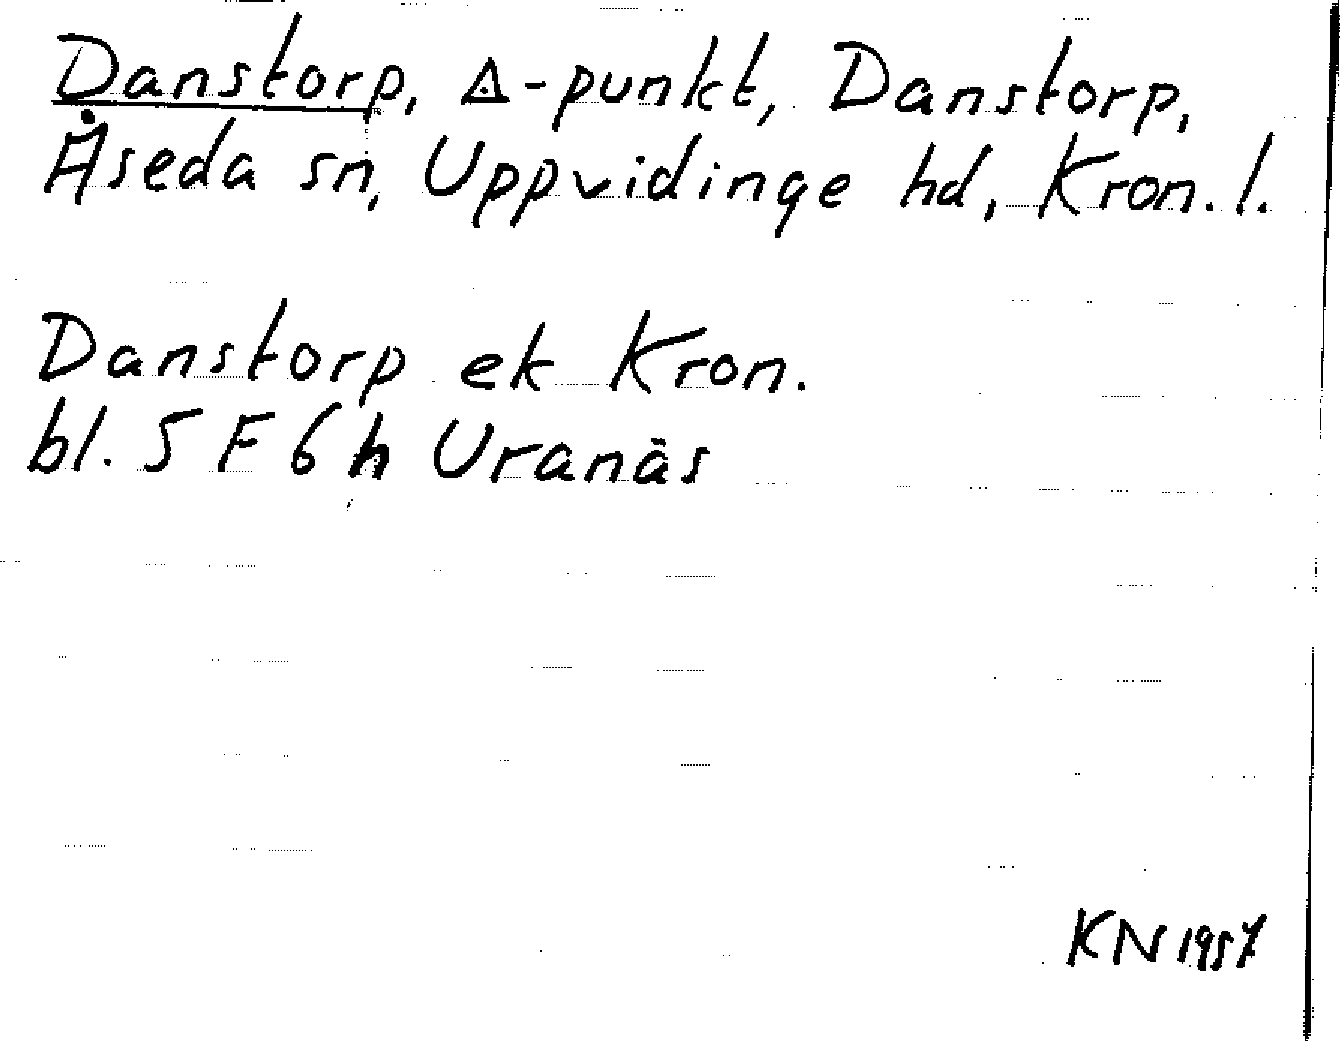 Danstorp, ∆-punkt, Danstorp,
Åseda sn, Uppvidinge hd, Kron. l.
Danstorp ek Kron.
bl. 5 F 6 h Uranäs
KN 1957